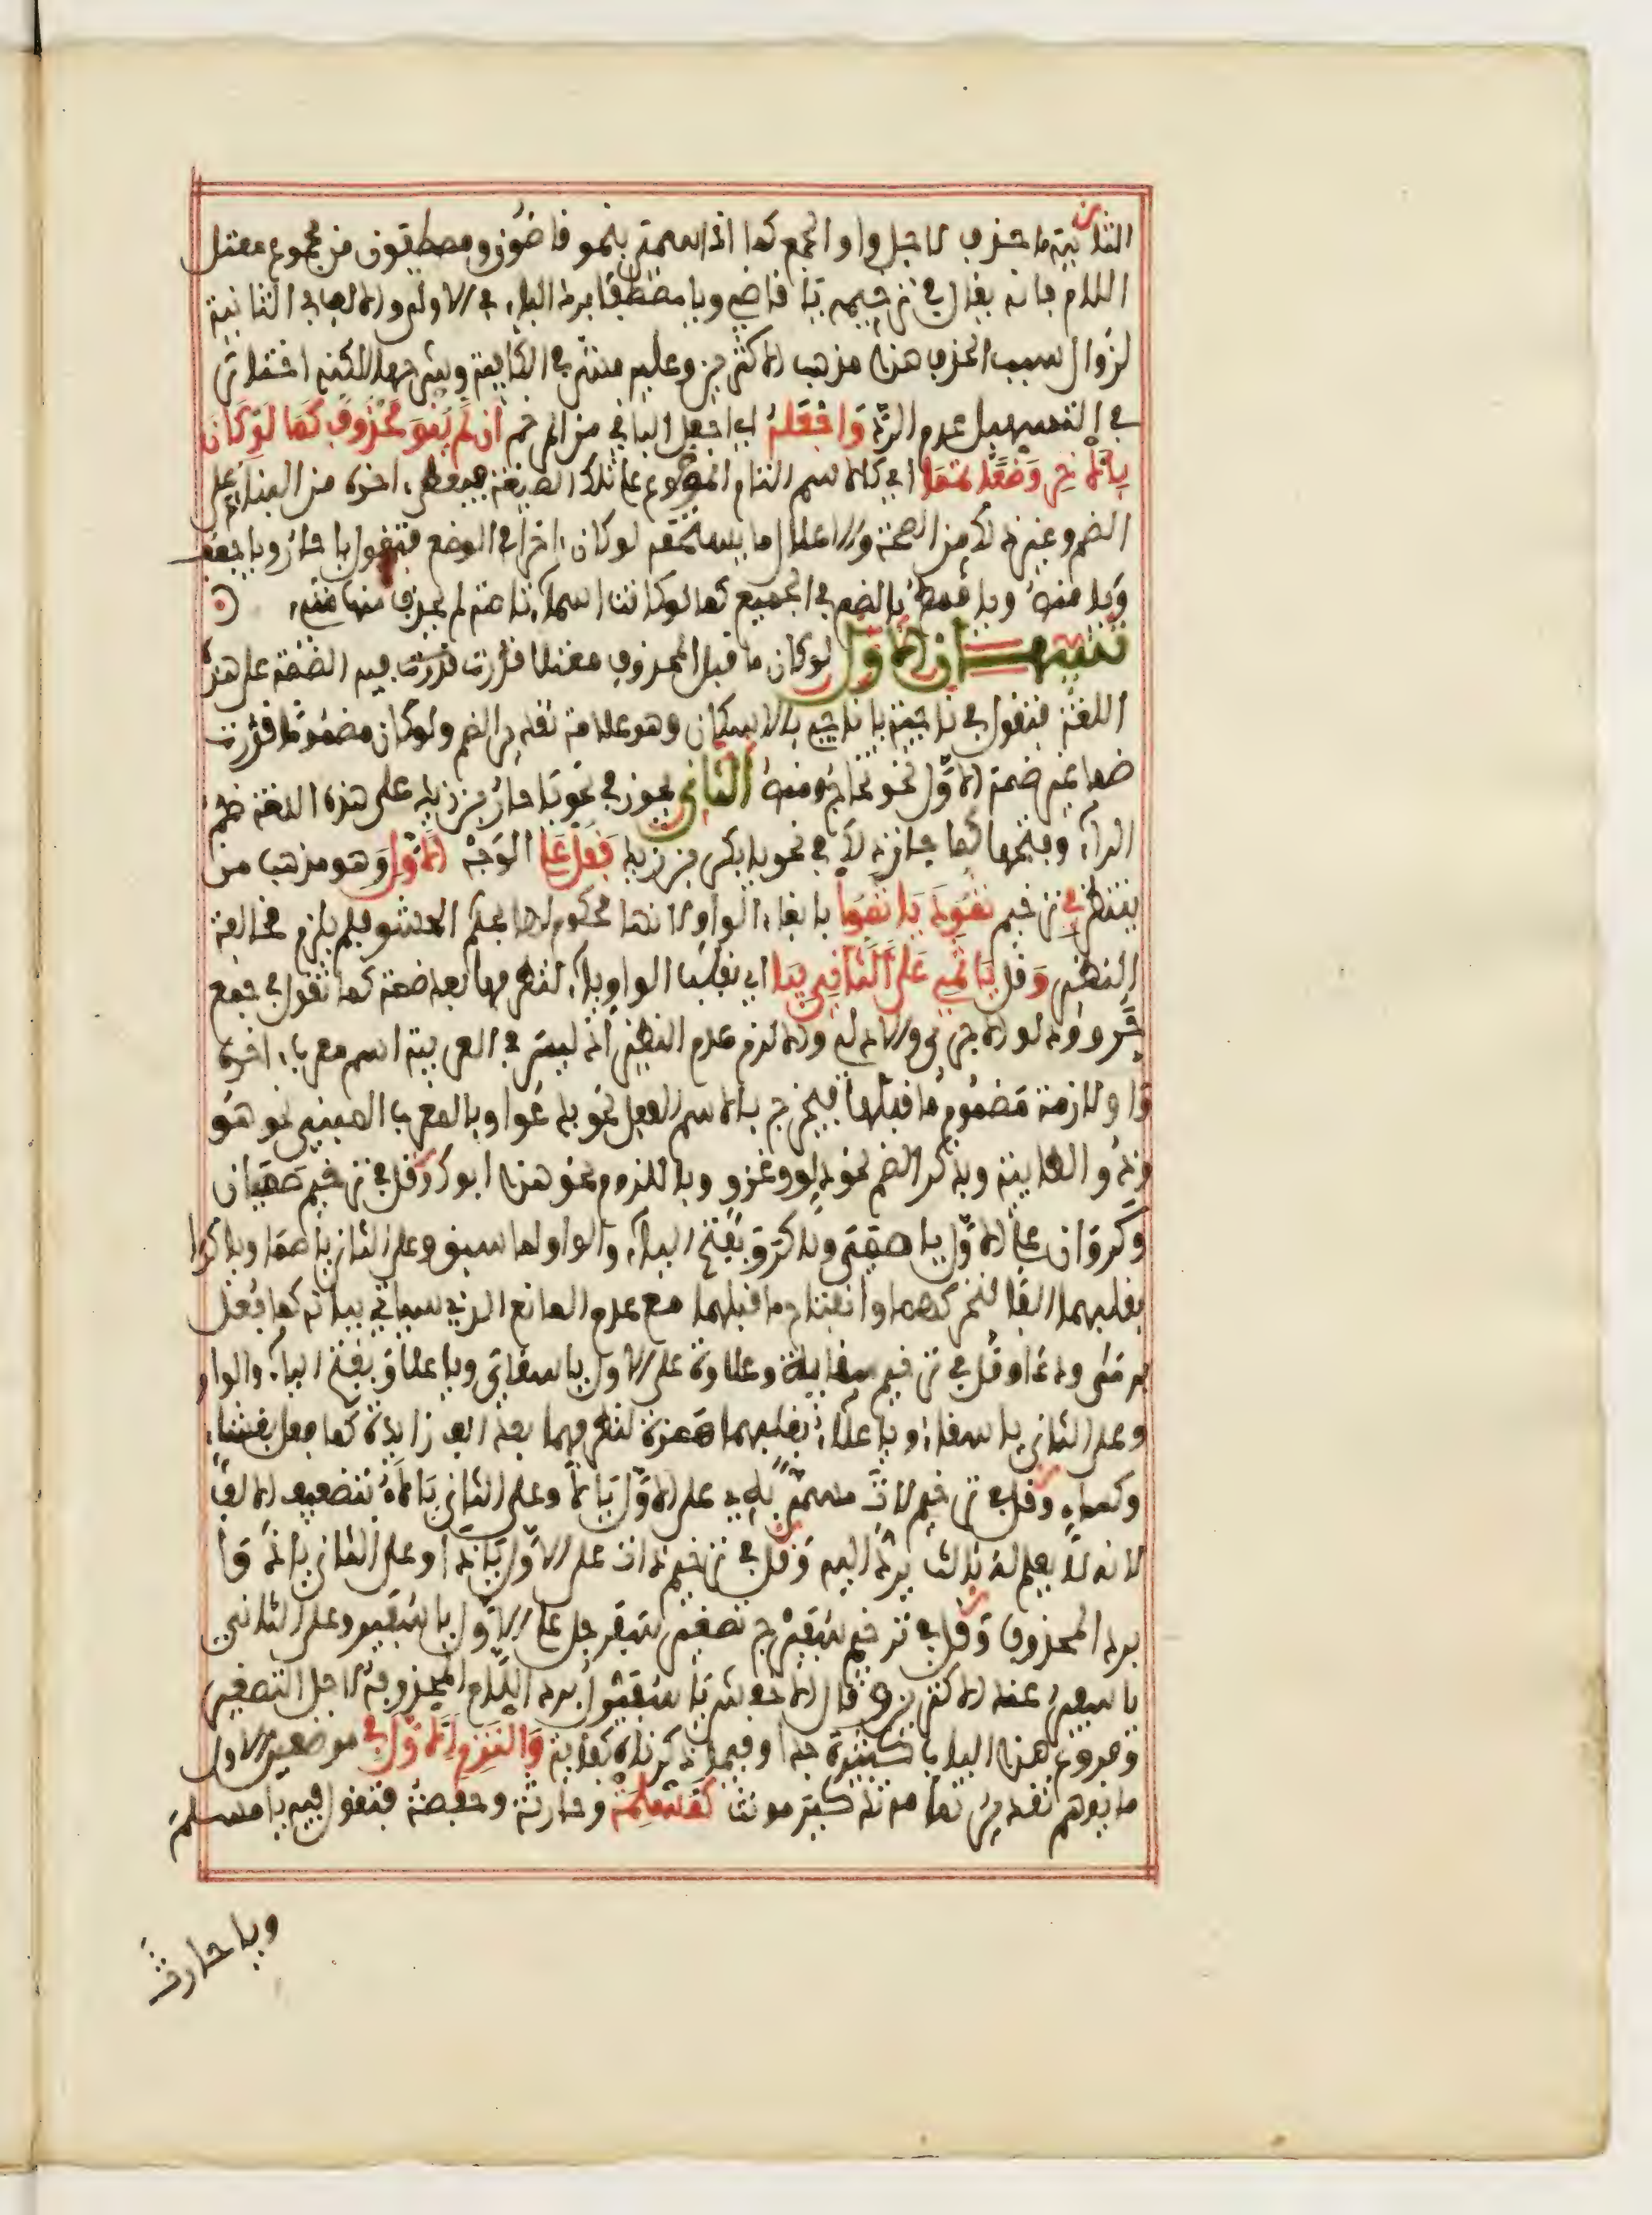 الثانية ما حذف لاجل واو الجمع كما اذا سميت بنحو قاضون ومصطفون من مجموع معتل
اللام فانه يقال في ترخيمه يا قاضي ويا مصطفا برد الياء في الاول والالف في الثانية
لزوال سبب الحذف هذا مذهب الاكثرين وعليه مشى في الكافية وشرحها لكنه اختار
في التسهيل عدم الرد وَاجْعَلْهُ اي اجعل الباقي من المرخم ان لم ينو محذوف كما لو كان
بالاخر وضعا تمما اي كالاسم التام الموضوع على تلك الصيغة فيعطى اخره من البناء على
الضم وغير ذلك من الصحة والاعلال ما يستحقه لو كان اخرا في الوضع فتقول يا حار ويا جعف
ويا منص ويا قمط بالضم في الجميع كما لو كانت اسماء تامة لم يحذف منها شيء
تنبيهان الاول لو كان ما قبل المحذوف معتلا قدرت فيه الضمة على هذه
اللغة فتقول في ناجية يا ناجي بالاسكان وهو علامة تقدير الضم ولو كان مضموما قدرت
ضما غير ضمه الاول نحو تحاج ومنص الثاني يجوز في نحو يا حار بن زيد على هذه اللغة ضم
الراء وفتحها كما جاز ذلك في نحو يا بكر بن زيد فقل على الوجه الاول وهو مذهب من
ينتظر في ترخيم ثمود يا ثمو بابقاء الواو لانها محكوم لها بحكم الحشو فلم يلزم مخالفة
النظير وقل يا ثمي على الثاني بيا اي بقلب الواو ياء لتطرفها بعد ضمة كما تقول في جمع
جرو ودلو الاجري والادلي والا لزم عدم النظير اذ ليس في العربية اسم معرب اخره
واو لازمة مضموم ما قبلها فيخرج بالاسم الفعل نحو يدعوا وبالمعرب المبني نحو هو
وذو الطايية وبذكر الضم نحو دلو وغزو وباللزوم نحو هذا ابوك وقل في ترخيم صميان
وكروان على الاول يا صمي ويا كرو بفتح الياء والواو لما سبق وعلى الثاني يا صما ويا كرا
بقلبهما الفا لتحركهما وانفتاح ما قبلهما مع عدم المانع الذي سياتي بيانه كما فعل
برمى ودعا وقل في ترخيم سقاية وعلاوة على الاول يا سقاي ويا علاو بفتح الياء والواو
وعلى الثاني يا سقاء ويا علاء بقلبهما همزة لتطرفهما بعد الف زايدة كما فعل بغشاء
وكساء وقل في ترخيم لات مسمى به على الاول يا لا وعلى الثاني يا لاء بتضعيف الالف
لانه لا يعلم له ثالث يرد اليه وقل في ترخيم ذات على الاول يا ذا وعلى الثاني يا ذوا
برد المحذوف وقل في ترخيم سفيرج تصغير سفرجل على الاول يا سفير وعلى الثاني
يا سفير عند الاكثرين وقال الاخفش يا سفيرل برد اللام المحذوفة لاجل التصغير
وفروع هذا الباب كثيرة جدا وفيما ذكرناه كفاية والتزم الاول في موضعين الاول
ما يوهم تقدير تمامه تذكير مونث كمسلمة وحارثة وحفصة فتقول فيه يا مسلمَ
ويا حارثَ